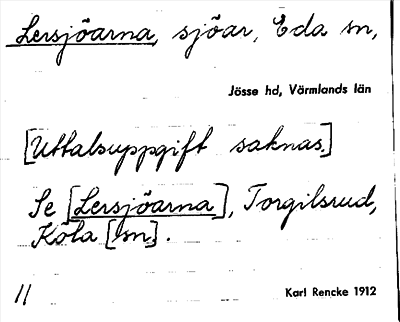 Lersjöarna, sjöar, Eda sn,
Jösse hd, Värmlands län
[Uttalsuppgift saknas.]
Se [Lersjöarna], Torgilsrud,
Köla [sn].
11
Karl Rencke 1912